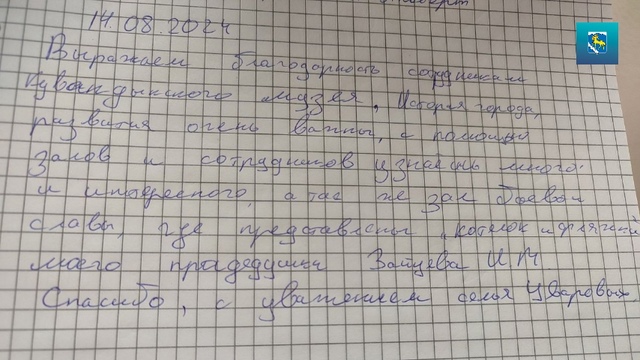 14.08.2024
Выражаем благодарность сотрудникам
Кувандыкского музея, История города,
развития очень важны, с помощью
залов и сотрудников узнаешь много
и интересного, а так же зал боевой
славы, где представлены котелок и фляжка
моего прадедушки Зайцева И.М
Спасибо, с уважением семья Уваровых